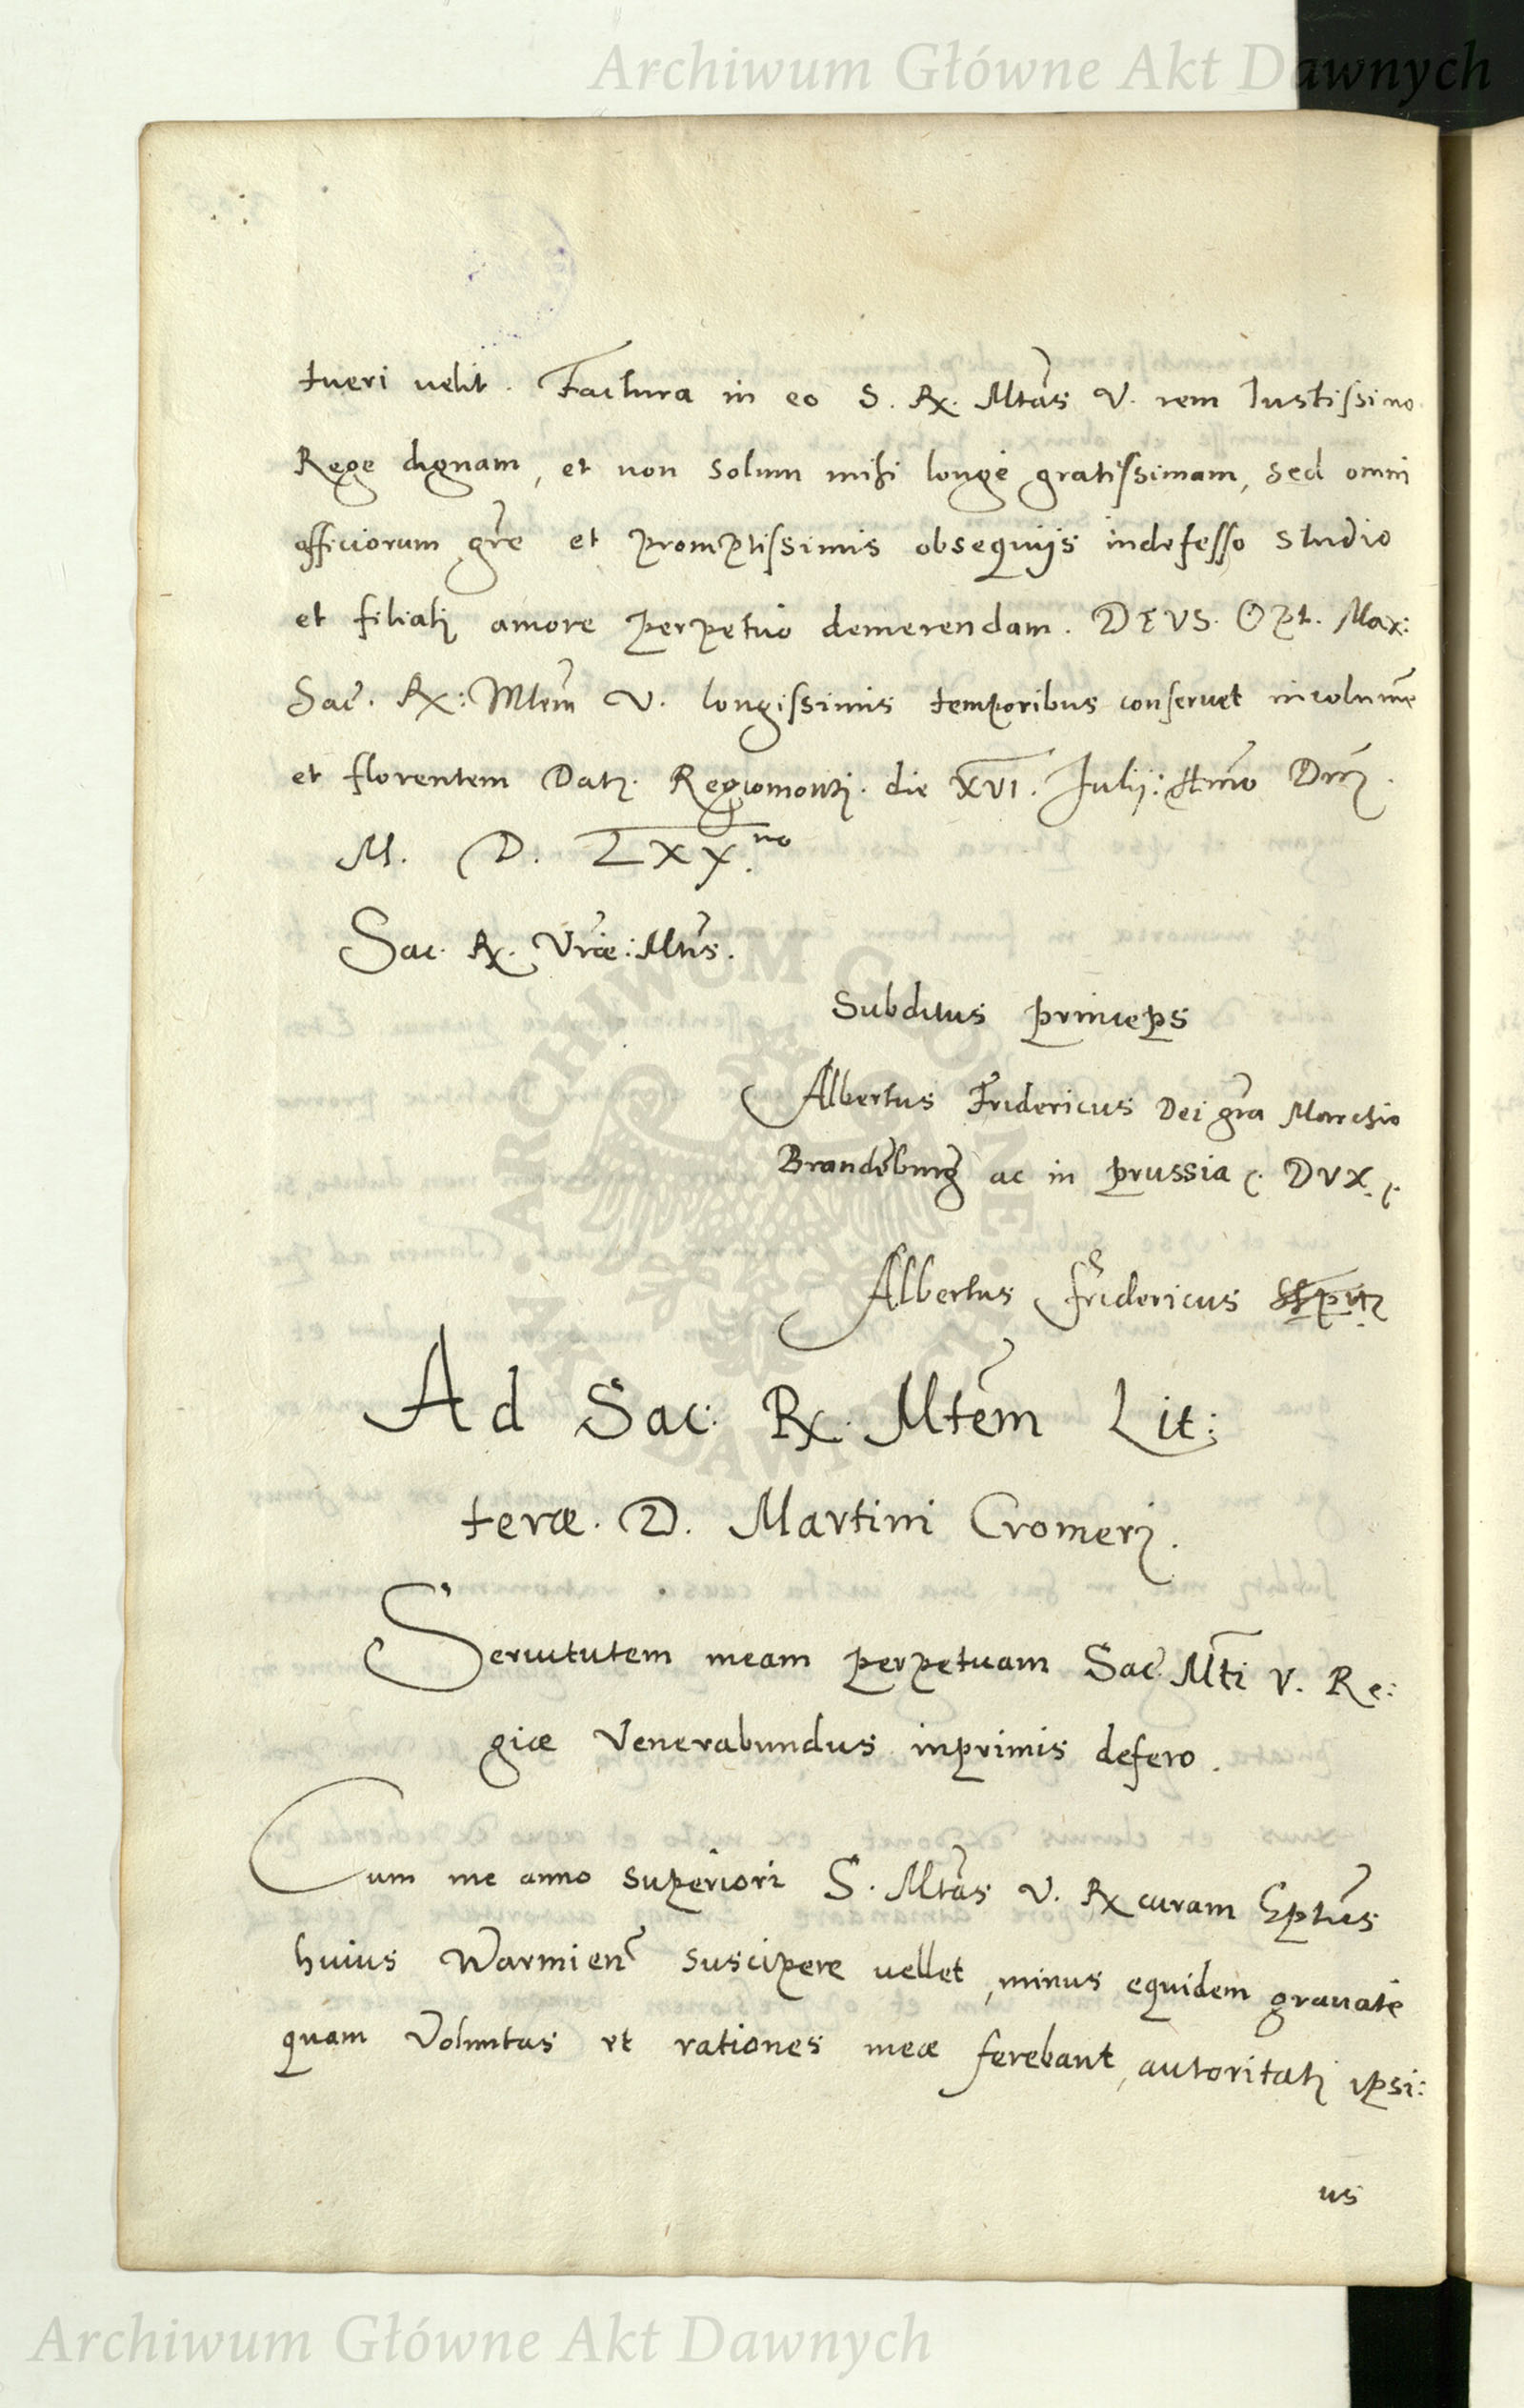 Archiwum Główne Akt Dawnych
tueri velit. Factura in eo S. Rx. Mtas V. rem Iustissimo
Rege dignam, et non solum mihi longè gratissimam, sed omni
officiorum gr̃e et promptissimis obsequijs indefesso studio
et filiali amore perpetuo demerendam. DEVS. Opt. Max:
Sac̃. Rx: Mtem̃ V. longissimis temporibus conseruet incolumẽ
et florentem Dat. Regiomonti. die XVI. Iulij: Anno Dni.
M. D. LXX.no
Sac. Rx. Vrae: Mtis.
Subditus princeps
Albertus Fridericus Dei gra Marchio
Brandẽburg ac in prussia DVX.
Albertus fridericus
Ad Sac: Rx. Mtem̃ Lit:
terae. D. Martini Cromeri.
Seruitutem meam perpetuam Sac̃. Mti V. Re:
giae Venerabundus inprimis defero.
Cum me anno superiori S. Mtas V. Rx curam Eptus
huius Warmien̄ suscipere vellet, minus equidem grauatè
quam Voluntas et rationes meae ferebant, autoritati ipsi:
us
ARCHIWUM GŁÓWNE AKT DAWNYCH
Archiwum Główne Akt Dawnych